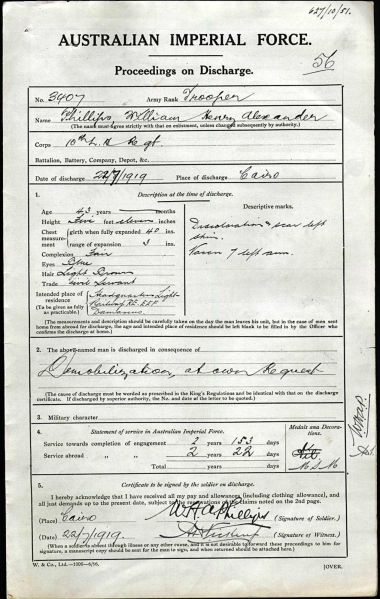 627/10/51.
AUSTRALIAN IMPERIAL FORCE.
Proceedings on Discharge.
56
No. 3907 Army Rank Trooper
Name Phillips, William Henry Alexander
(The name must agree strictly with that on enlistment, unless changed subsequently by authority.)
Corps 10th L.H. Regt
Battalion, Battery, Company, Depot, &c.
Date of discharge 22/7/1919 Place of discharge Cairo
1. Description at the time of discharge.
Age 43 years months
Height Five feet eleven inches
Chest measurement girth when fully expanded 40 ins.
range of expansion 3 ins.
Complexion Fair
Eyes Blue
Hair Light Brown
Trade Civil Servant
Intended place of residence (To be given as fully as practicable) Headquarters Light Railway R.E. EEF
Damascus
Descriptive marks.
Discoloration & scar left
shin.
left arm.
(The measurements and description should be carefully taken on the day the man leaves his unit, but in the case of men sent home from abroad for discharge, the age and intended place of residence should be left blank to be filled in by the Officer who confirms the discharge at home.)
2. The above-named man is discharged in consequence of
Demobilization, at own Request
(The cause of discharge must be worded as prescribed in the King's Regulations and be identical with that on the discharge certificate. If discharged by superior authority, the No. and date of the letter to be quoted.)
3. Military character
4. Statement of service in Australian Imperial Force.
Medals and Decorations.
Service towards completion of engagement 2 years 153 days
Service abroad " " 2 years 22 days
Total years days
Nil
M.S.M.
5. Certificate to be signed by the soldier on discharge.
I hereby acknowledge that I have received all my pay and allowances (including clothing allowance), and all just demands up to the present date, subject to the reservations of the claims noted on the 2nd page.
(Place) Cairo W H A Phillips (Signature of Soldier.)
(Date) 22/7/1919. (Signature of Witness.)
(When a soldier is absent through illness or any other cause, and it is not desirable to forward these proceedings to him for signature, a manuscript copy should be sent for the man to sign, and when returned should be attached here.)
W. & Co., Ltd.
[OVER.